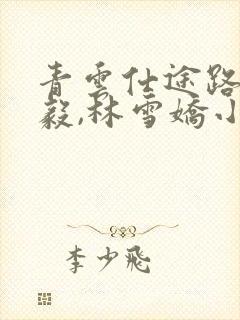 青雲仕途路
毅,林雪嬌小
李少飛